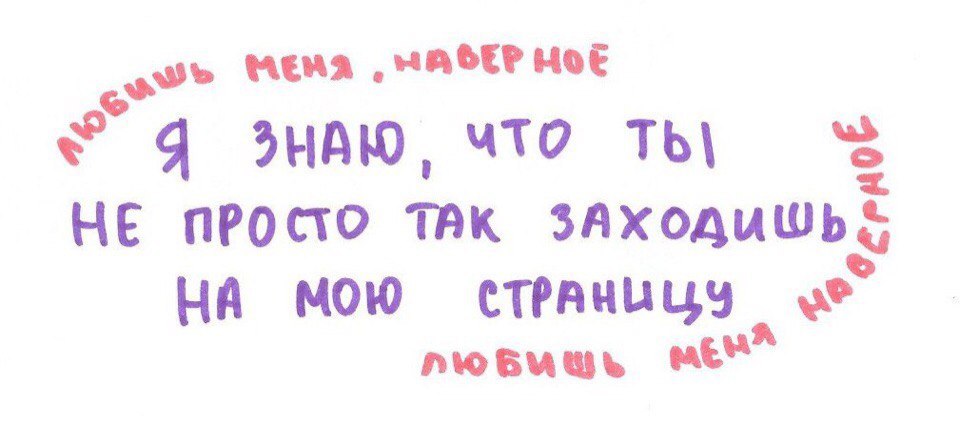 любишь меня, наверное
Я знаю, что ты
не просто так заходишь
на мою страницу
любишь меня наверное